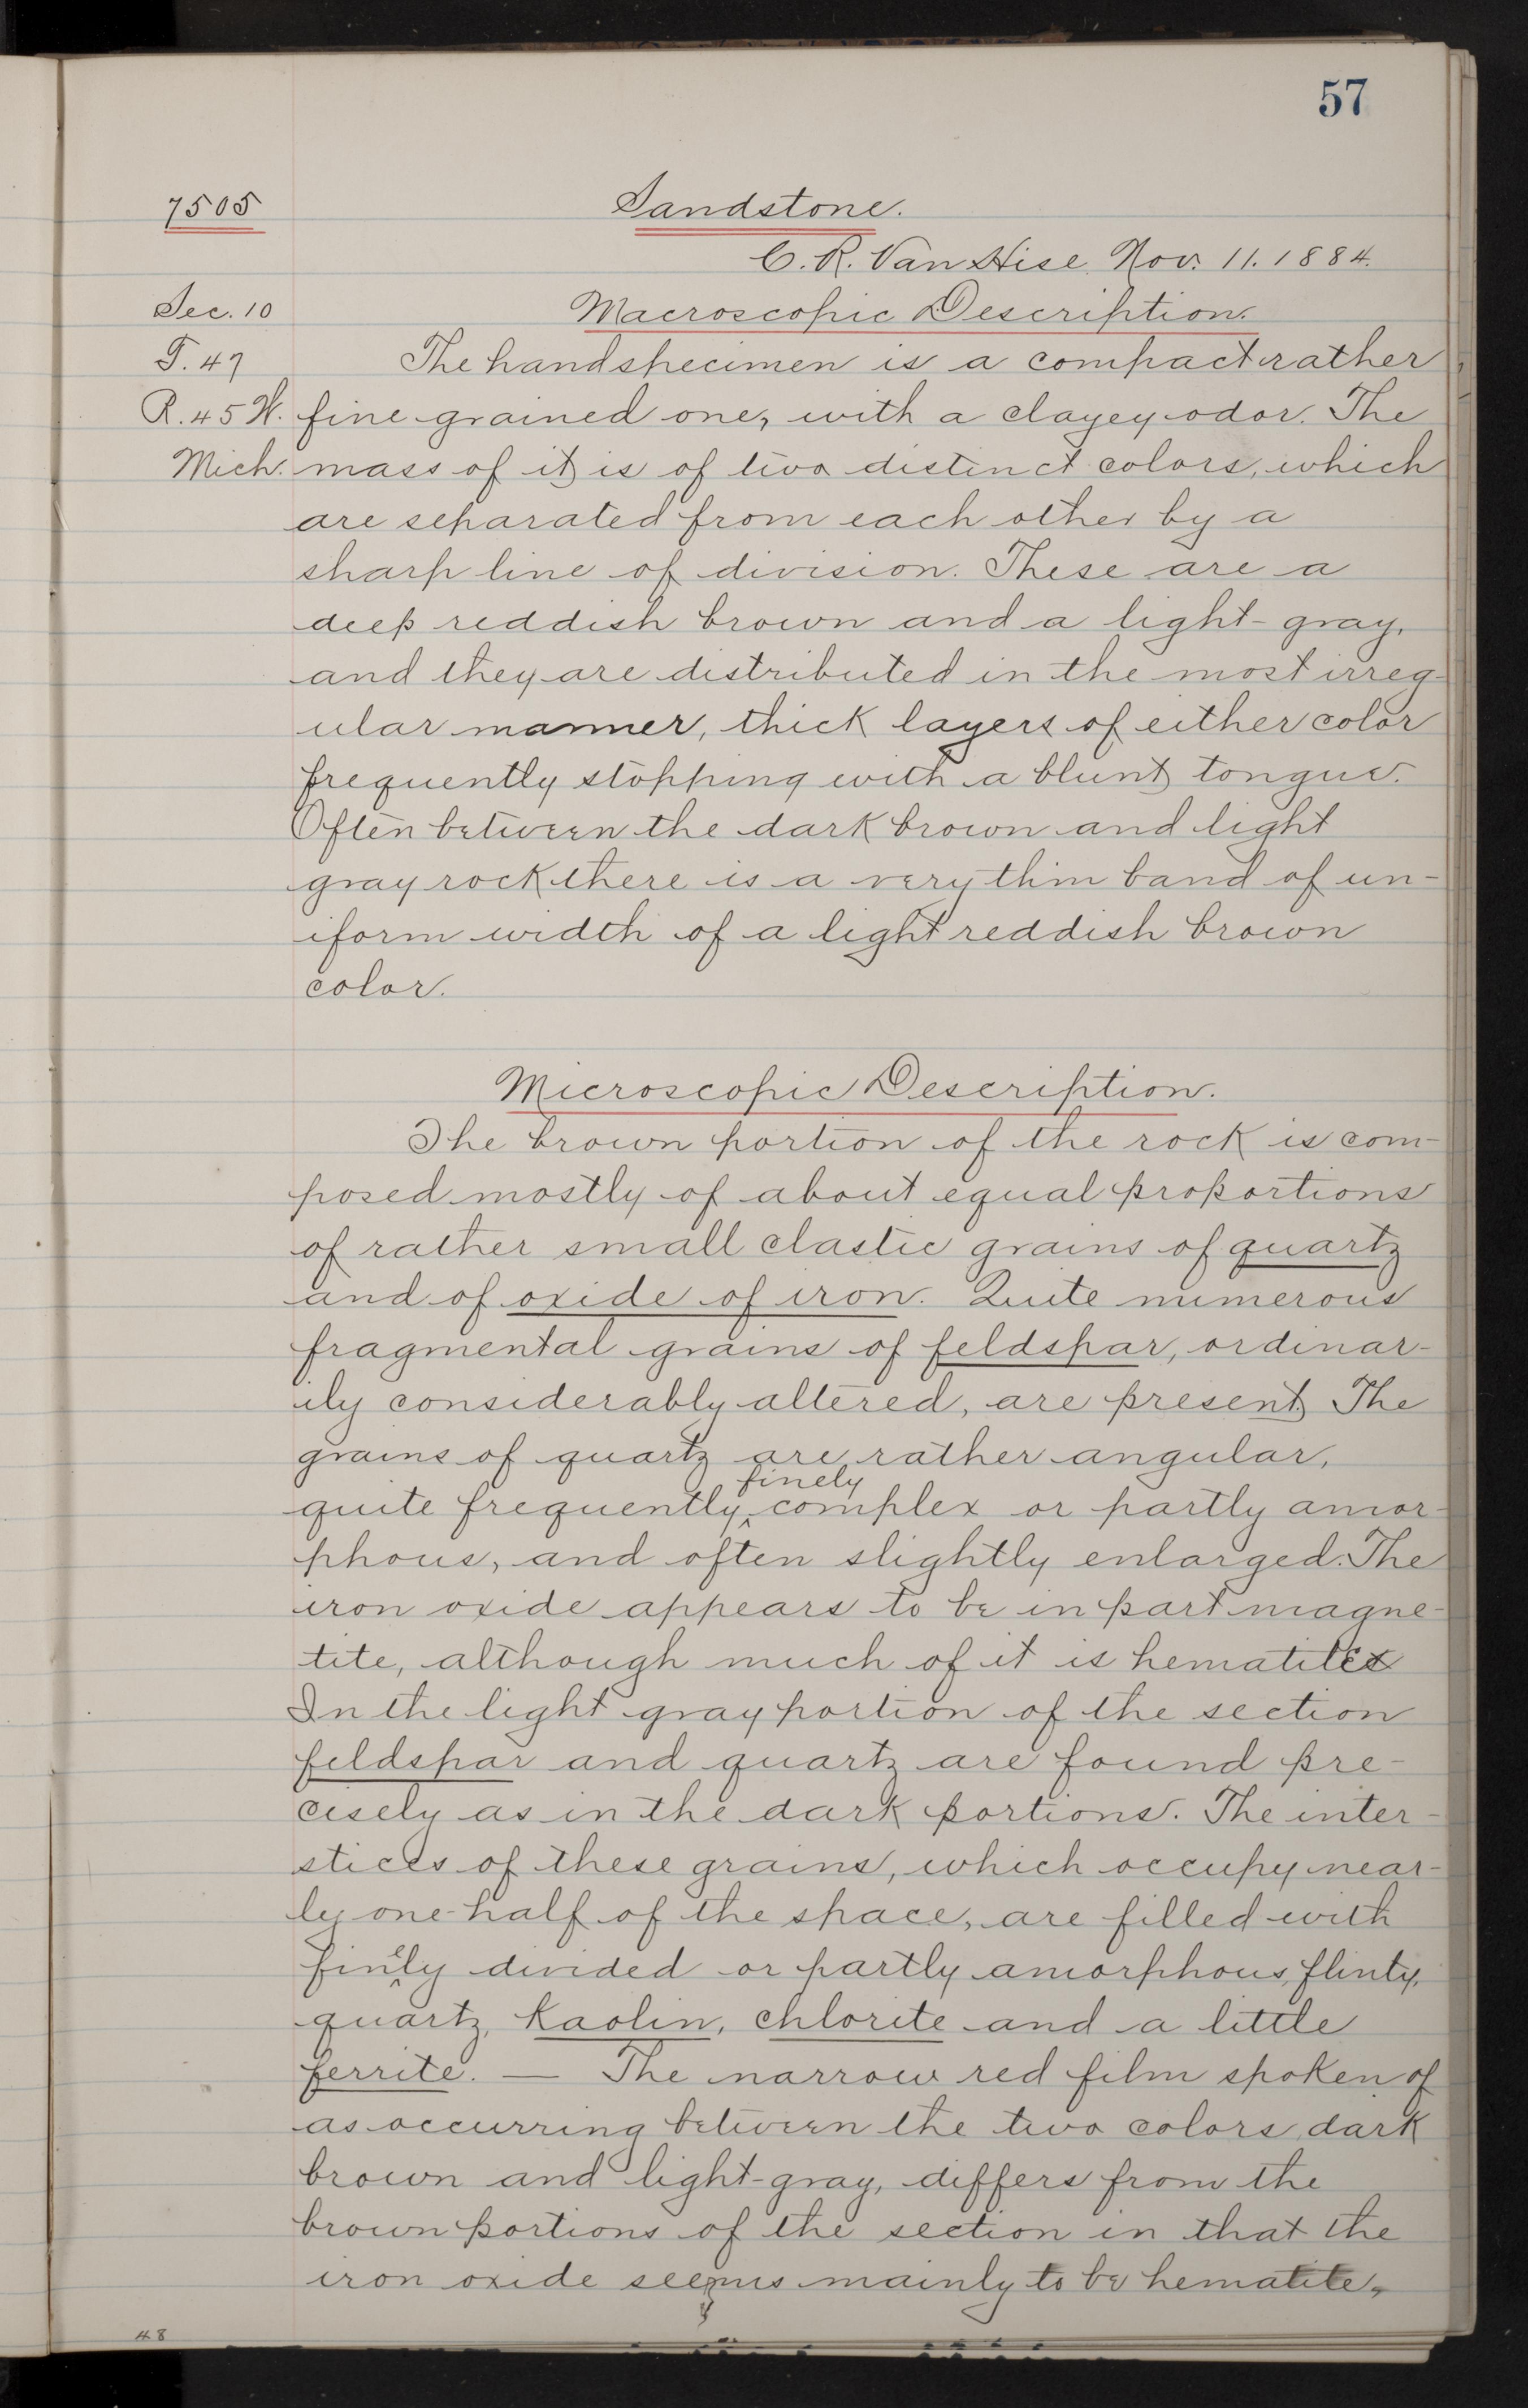 57
7505
Sandstone.
C. R. Van Hise. Nov. 11. 1884.
Sec. 10
Macroscopic Description.
T. 47
The hand specimen is a compact rather
R. 45 W.
fine grained one, with a clayey odor. The
Mich.
mass of it is of two distinct colors, which
are separated from each other by a
sharp line of division. These are a
deep reddish brown and a light-gray,
and they are distributed in the most irreg-
ular manner, thick layers of either color
frequently stopping with a blunt tongue.
Often between the dark brown and light
gray rock there is a very thin band of un-
iform width of a light reddish brown
color.
Microscopic Description.
The brown portion of the rock is com-
posed mostly of about equal proportions
of rather small clastic grains of quartz
and of oxide of iron. Quite numerous
fragmental grains of feldspar, ordinar-
ily considerably altered, are present. The
grains of quartz are rather angular,
quite frequently finely complex or partly amor-
phous, and often slightly enlarged. The
iron oxide appears to be in part magne-
tite, although much of it is hematite
In the light gray portion of the section
feldspar and quartz are found pre-
cisely as in the dark portions. The inter-
stices of these grains, which occupy near-
ly one-half of the space, are filled with
finely divided or partly amorphous, flinty,
quartz, kaolin, chlorite and a little
ferrite. — The narrow red film spoken of
as occurring between the two colors, dark
brown and light-gray, differs from the
brown portions of the section in that the
iron oxide seems mainly to be hematite.
48